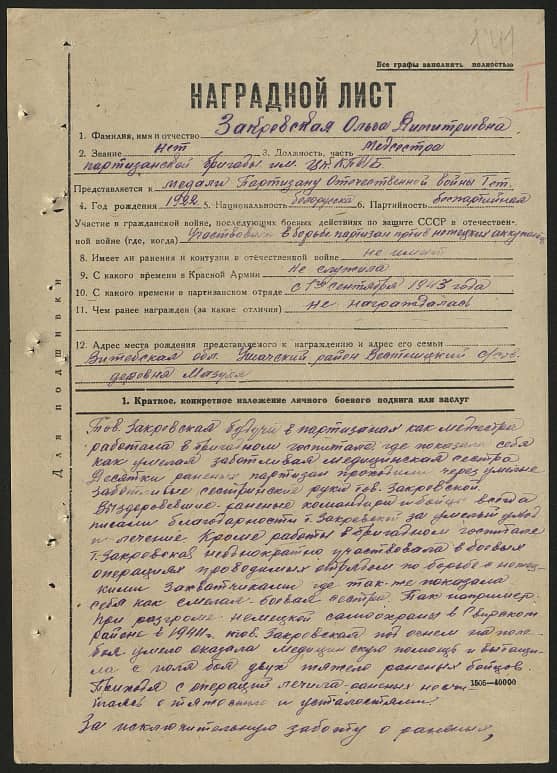 141
Все графы заполнять полностью
I
НАГРАДНОЙ ЛИСТ
1. Фамилия, имя и отчество Закревская Ольга Дмитриевна
2. Звание нет 3. Должность, часть Медсестра
партизанской бригады им. ЦК КП/б/Б
Представляется к медали Партизану Отечественной войны I ст.
4. Год рождения 1922 5. Национальность белоруска 6. Партийность беспартийная
Участие в гражданской войне, последующих боевых действиях по защите СССР в отечествен-
ной войне (где, когда) Участвовала в борьбе партизан против немецких оккупантов
8. Имеет ли ранения и контузии в отечественной войне не имеет
9. С какого времени в Красной Армии не служила
10. С какого времени в партизанском отряде с 1го сентября 1943 года
11. Чем ранее награжден (за какие отличия) не награждалась
12. Адрес места рождения представляемого к награждению и адрес его семьи
Витебская обл. Ушачский район с/сов.
деревня
Для подшивки
1. Краткое, конкретное изложение личного боевого подвига или заслуг
Тов. Закревская будучи в партизанах как медсестра
работала в бригадном госпитале где показала себя
как умелая заботливая медицинская сестра
Десятки раненых партизан проходили через умелые
заботливые сестринские руки тов. Закревской.
Выздоровевшие раненые командиры и бойцы всегда
писали благодарности т. Закревской за умелый уход
и лечение. Кроме работы в бригадном госпитале
т. Закревская неоднократно участвовала в боевых
операциях проводимых отрядом по борьбе с немец-
кими захватчиками где так-же показала
себя как смелая боевая сестра. Так например:
При разгроме немецкой самоохраны в Свирском
районе в 1944 г. тов. Закревская под огнем на поле
боя умело оказала медицинскую помощь и вытащи-
ла с поля боя двух тяжело раненых бойцов.
Приходя с операций лечила раненых несчи-
таясь с и усталостями.
1505—40000
За исключительную заботу о раненых,